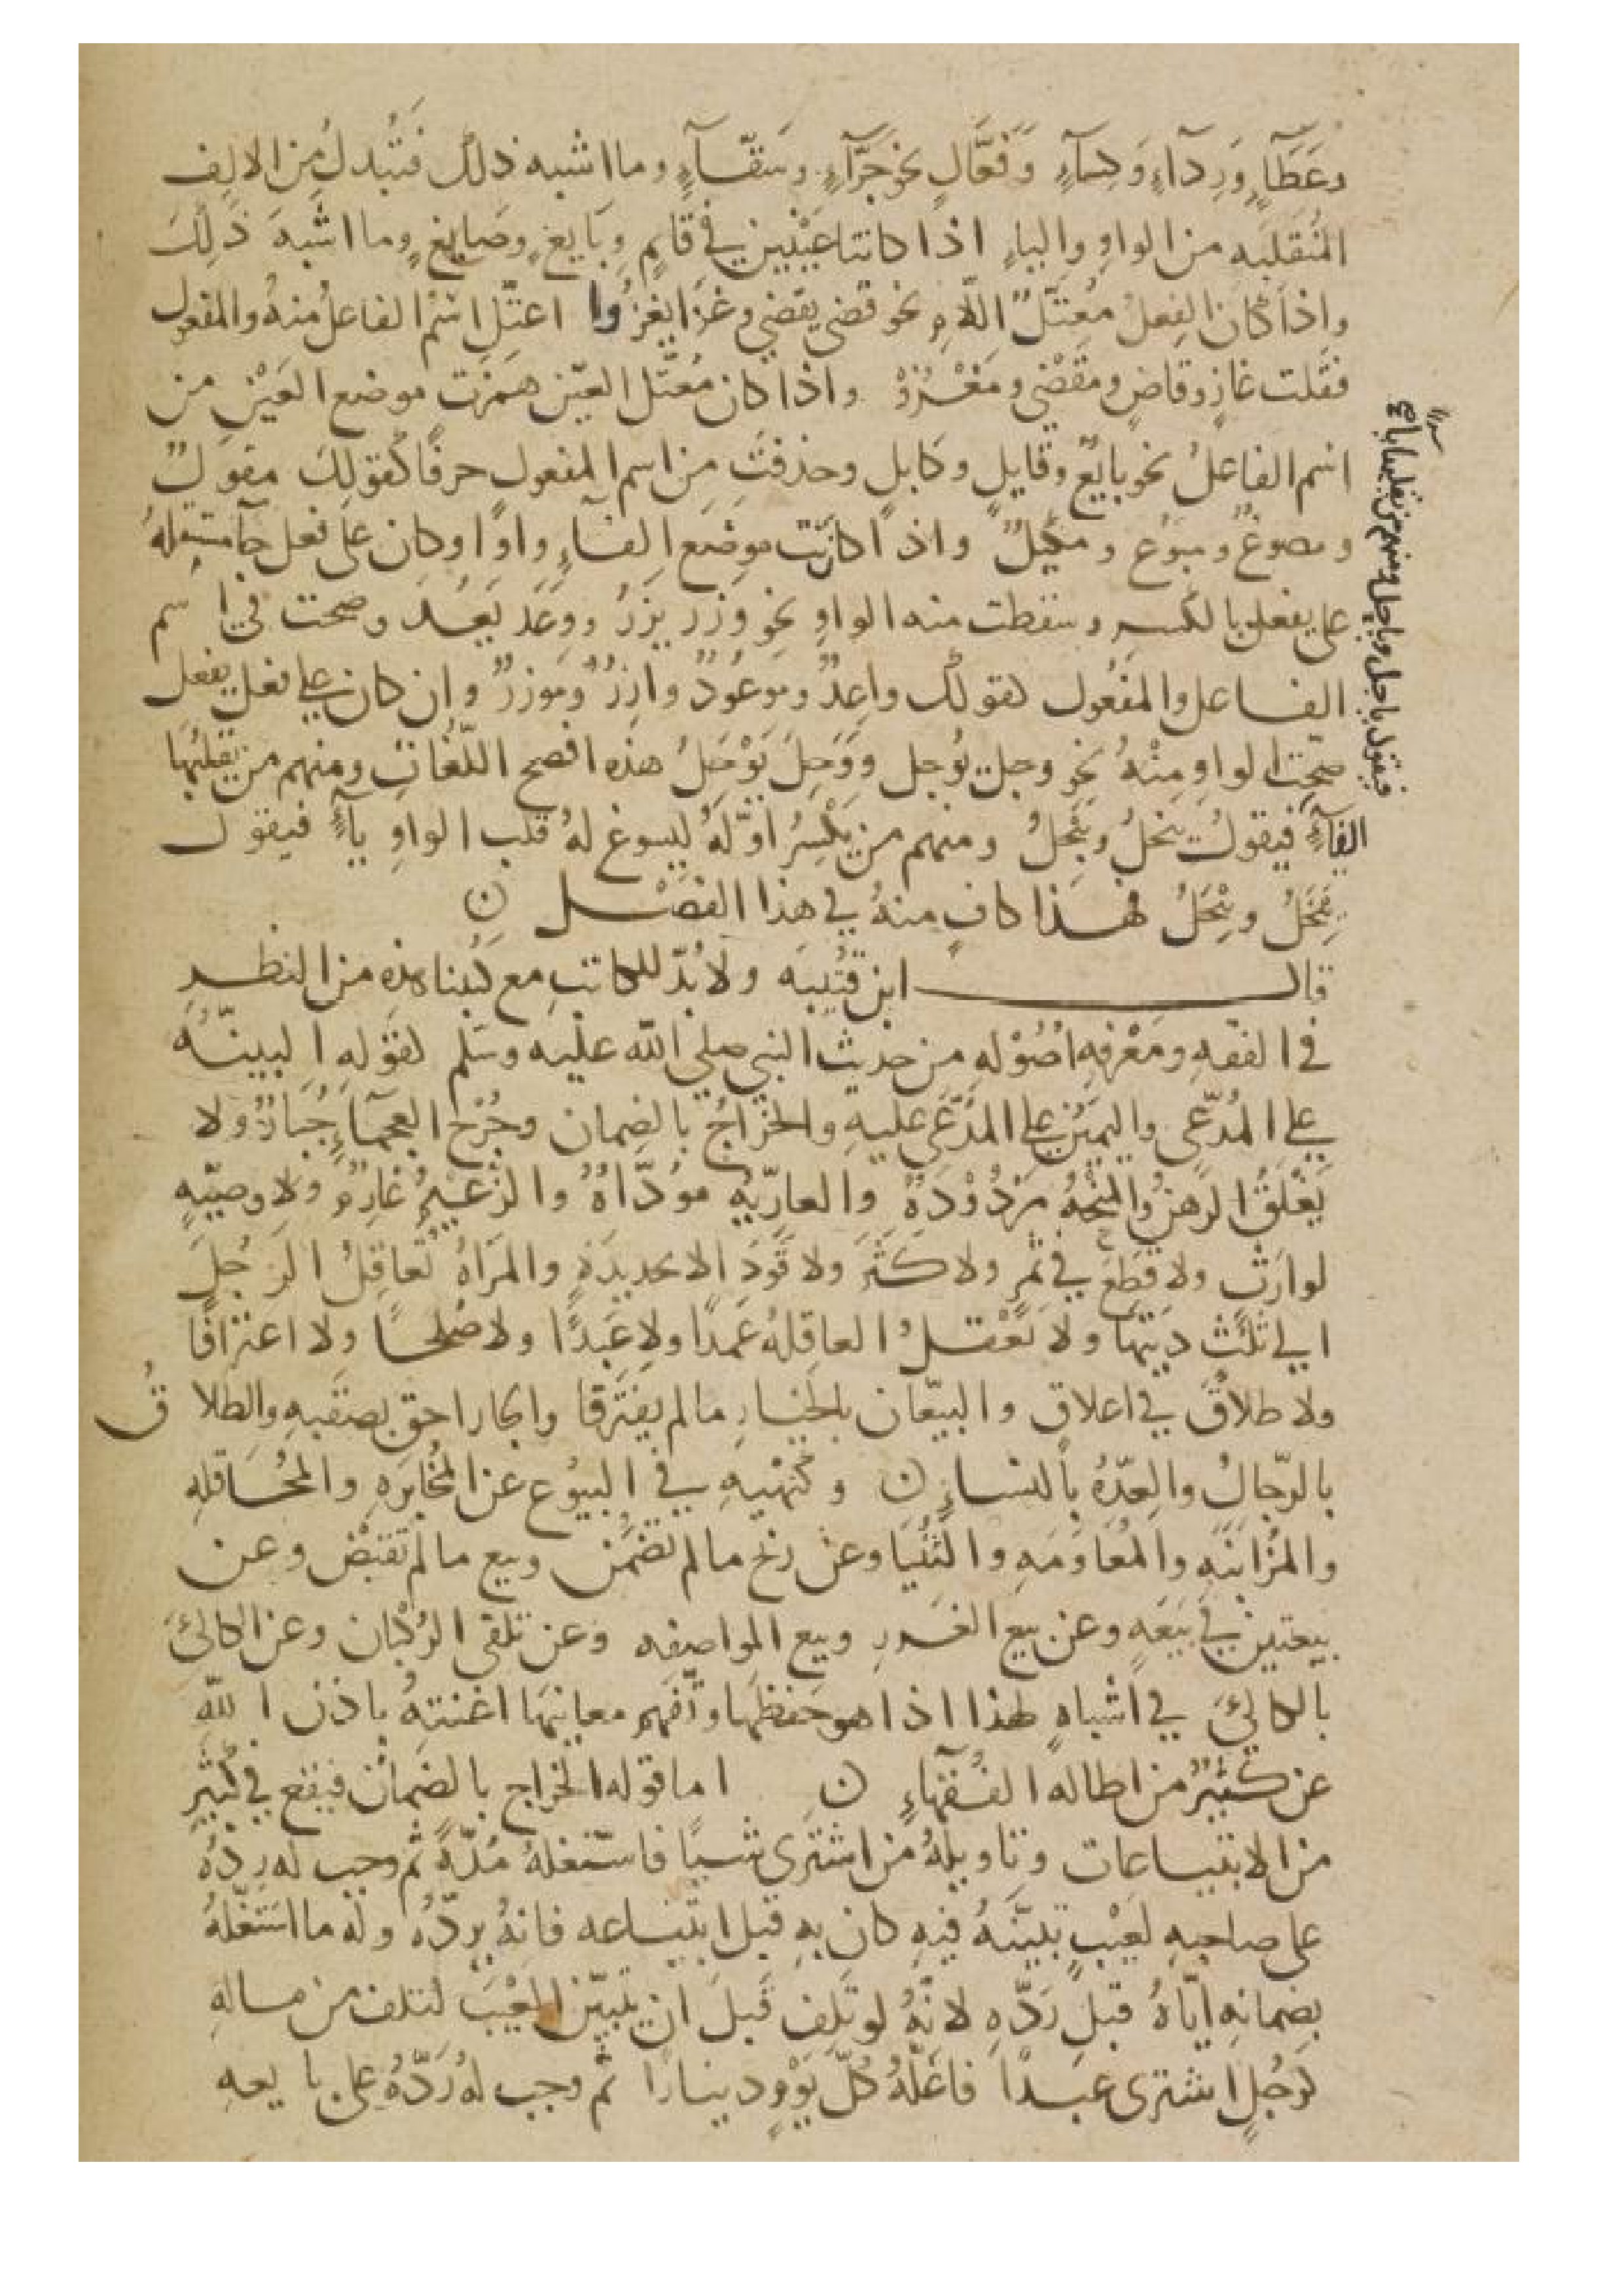 وعَطَآءٍ وَرِدآءٍ وَكِسَآءٍ وَفَعَّالٍ نحو جَرَّآءٍ وسَقّآءٍ وما اشبه ذلك فتُبدلُ من الالِف
المُنقلبه من الواوِ والياءِ اذا كانتا عَيْنَيْن في قايمٍ وبَايعٍ وصَايغٍ وما اشبهَ ذَلِكَ
واذا كان الفِعلُ مُعتَلّ اللامِ نحو قضى يقضي وغزا يغزُوا اعتلّ اسْمُ الفاعل منهُ والمفعول
فقلت غازٍ وقاضٍ ومقْضي ومَغْزُوْ واذا كان مُعتّل العيْن همَزت موضع العَيْن من
اسم الفاعل نحو بايعٌ وقايلٍ وكايلٍ وحذفتَ من اسم المفعول حرفًا كقولِكَ مقولٌ
ومصوغٌ ومبوُع ومكيلٌ واذا كانت موضع الفآءِ واوًا وكان على فعل جآ مستقبلهُ
على يفعل بالكسرِ وسقطت منه الواوِ نحو وزَر يزِرُ ووَعَد يَعِدُ وصحت في اسم
الفاعل والمفعُول كقولك واعِدٌ وموعُودٌ وازِرٌ ومَوزرٌ وان كان على فعل يفعل
صحّت الواو مِنْهُ نحو وجل يُوجل وَوَحِلَ يَوْحَلُ هذه افصح اللّغاتِ ومنهم من يقلبُها
الفآءً فيقولُ ومنهم من يكْسِرُ اوّلهُ ليسوغ لهُ قلب الواوِ يآءً فيقول
فهذا كافٍ منهُ في هذا الفصْل ن
قال ابن قُتيبَه ولا بُدّ للكاتبِ مع كُتبنا هذه من النظرِ
في الفقهِ ومَعْرفهِ اصُوْلهِ من حديث النبي صلى الله عليه وسَلم كقوله البينّهُ
على المُدّعِي واليَمين على المدّعَى عليهِ والخَرَاجُ بالضِمان وجُرْحُ العجمآءِ جُبَارٌ ولا
يَغْلَقُ الرَهنُ والمنْحَهُ مرْدُوْدَهٌ والعارّيهُ مؤدّاهٌ والزَعيمُ غارِمٌ ولا وصيّهٍ
لوارثٍ ولا قطعَ في ثمرٍ ولا كَثَرَ ولا قَوَدَ الا بحديدَةٍ والمَرَاهُ تُعاقِلُ الرَجُلَ
الى ثلُثِ دِيَتَها ولا تعْقلُ العاقلهُ عَمدًا ولا عَبدًا ولا صُلحًا ولا اعترافًا
ولا طلاقَ في اغلاقٍ والبيّعَان بالخيَارِ ما لم يَفترَقا والجار احق بصقَبهِ والطلاقُ
بالرّجالِ والعدّهُ بالنساءِ ن وكنهيهِ في البيُوع عن المخُابَرهِ والمحُاقلهِ
والمزُابنَهِ والمُعَاوَمَهِ والثُنْيَا وعن ربْح ما لم تضمَن وبيع ما لم تقبْض وعن
بيعتين في بَيعَهٍ وعن بيع الغَررِ وبيع المواصفه وعن تلقى الرُكْبان وعن الكالئَ
بالكالئَ في اشباهٍ لهذا اذا هو حَفظها وتفَهم معانيها اغنتهُ باذن اللهِ
عن كثيرٌ من اطاله الفُقهاءِ ن اما قوله الخراج بالضمان فيقع في كثيرٍ
من الابتياعات وتاويلهُ من اشترى شيئًا فاستغلهُ مُدّةً ثم وجب له ردّهُ
على صاحبهِ لعَيْبٍ تبيّنَهُ فيهِ كان بهِ قبل ابتياعه فانهُ يردّهُ ولهُ ما استَغلّهُ
بضمانهِ ايّاهُ قبل رَدّهِ لانّهُ لو تَلِفَ قَبلَ ان يتبيّن العَيْبَ لتلف من مالهِ
كرجُلٍ اشترى عَبدًا فاغلّهُ كلّ يَوْمٍ دينارًا ثم وجب لهُ رَدّهُ على بايعهِ
فيقول ياجل وياحل ومنهم من يقلبها يا